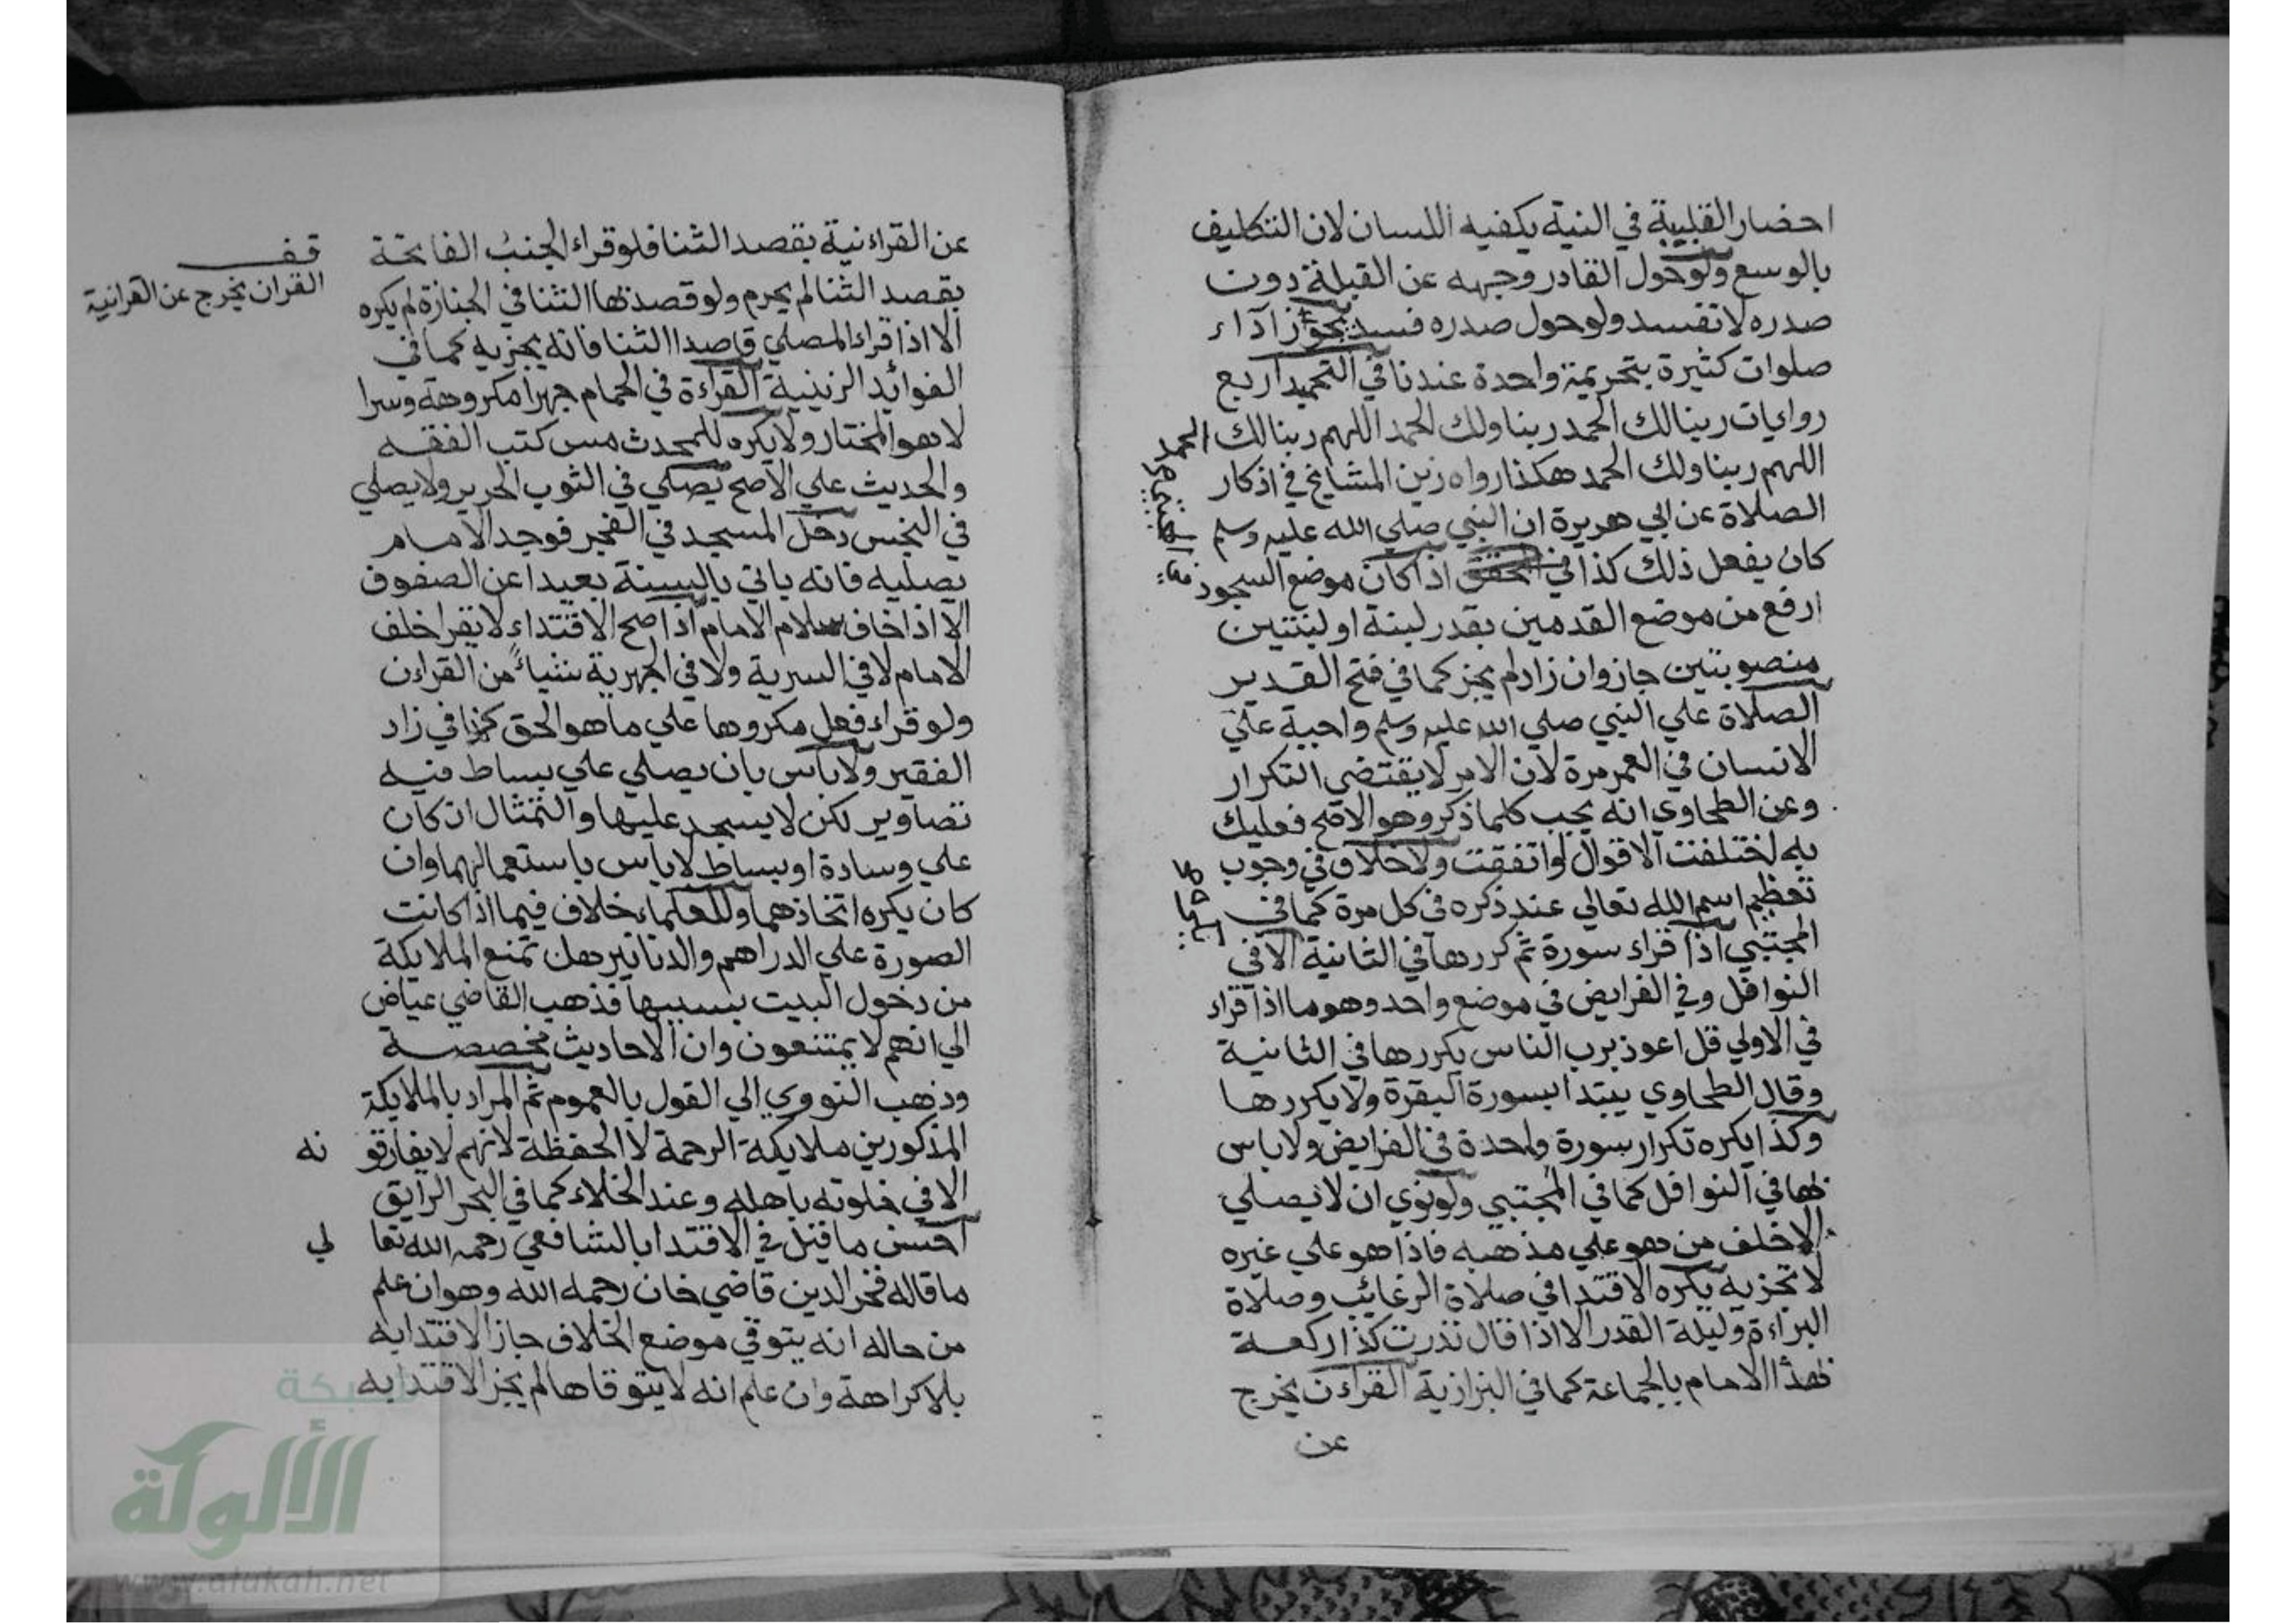 احضار القلبية في النية يكفيه اللسان لان التكليف
بالوسع ولو حول القادر وجهه عن القبلة دون
صدره لا تفسد ولو حول صدره فسد يجوز آداء
صلوات كثيرة بتحريمة واحدة عندنا في التحميد اربع
روايات ربنا لك الحمد ربنا ولك الحمد اللهم ربنا لك الحمد
اللهم ربنا ولك الحمد هكذا رواه زين المشايخ في اذكار
الصلاة عن ابي هريرة ان النبي صلي الله عليه وسلم
كان يفعل ذلك كذا في اذا كان موضع السجود
ارفع من موضع القدمين بقدر لبنة او لبنتين
منصوبتين جاز وان زاد لم يجز كما في فتح القدير
الصلاة علي النبي صلي الله عليه وسلم واجبة علي
الانسان في العمر مرة لان الامر لا يقتضي التكرار
وعن الطحاوي انه يجب كلما ذكر وهو الاصح فعليك
به اختلفت الاقوال او اتفقت ولا خلاف في وجوب
تعظيم اسم الله تعالي عند ذكره في كل مرة كما في
المجتبي اذا قراء سورة ثم كررها في الثانية الا في
النوافل وفي الفرايض في موضع واحد وهو ما اذا قراء
في الاولي قل اعوذ برب الناس يكررها في الثانية
وقال الطحاوي يبتدا بسورة البقرة ولا يكررها
وكذا يكره تكرار سورة واحدة في الفرايض ولا باس
بها في النوافل كما في المجتبي ولو نوي ان لا يصلي
الا خلف من هو علي مذهبه فاذا هو علي غيره
لا تجزيه يكره الاقتدا في صلاة الرغائب وصلاة
البراءة وليلة القدر الا اذا قال نذرت كذا ركعة
بهذا الامام بالجماعة كما في البزازية القراءن يخرج
عن
عن القراءنية بقصد الثنا فلو قراء الجنب الفاتحة
بقصد الثنا لم يحرم ولو قصد بها الثنا في الجنازة لم يكره
الا اذا قراء المصلي قاصدا الثنا فانه يجزيه كما في
الفوائد الزينية القراءة في الحمام جهرا مكروهة وسرا
لا هو المختار ولا يكره للمحدث مس كتب الفقه
والحديث علي الاصح يصلي في الثوب الحرير ولا يصلي
في النجس دخل المسجد في الفجر فوجد الامام
يصليه فانه ياتي بالسنة بعيدا عن الصفوف
الا اذا خاف سلام الامام اذا صح الاقتداء لا يقرا خلف
الامام لا في السرية ولا في الجهرية شيأ من القراءن
ولو قراء فعل مكروها علي ما هو الحق كذا في زاد
الفقير ولا باس بان يصلي علي بساط فيه
تصاوير لكن لا يسجد عليها والتمثال ان كان
علي وسادة او بساط لا باس باستعمالهما وان
كان يكره اتخاذهما وللعلماء خلاف فيما اذا كانت
الصورة علي الدراهم والدنانير هل تمنع الملايكة
من دخول البيت بسببها فذهب القاضي عياض
الي انهم لا يمتنعون وان الاحاديث مخصصة
وذهب النووي الي القول بالعموم ثم المراد بالملايكة
المذكورين ملايكة الرحمة لا الحفظة لانهم لا يفارقو نه
الا في خلوته باهله وعند الخلاء كما في البحر الرايق
احسن ما قيل في الاقتدا بالشافعي رحمه الله تعا لي
ما قاله فخر الدين قاضي خان رحمه الله وهو ان علم
من حاله انه يتوقي موضع الخلاف جاز الاقتدا به
بلا كراهة وان علم انه لا يتوقاها لم يجز الاقتدا به
قف
القران يخرج عن القرانية
شبكة
الألوكة
www.alukah.net